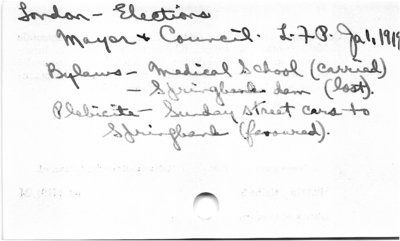 London - Elections
Mayor + Council. L.F.P. Ja 1, 1919
Bylaws - Medical School (carried)
- Springbank dam (lost).
Plebicite - Sunday street cars to
Springbank (favoured).